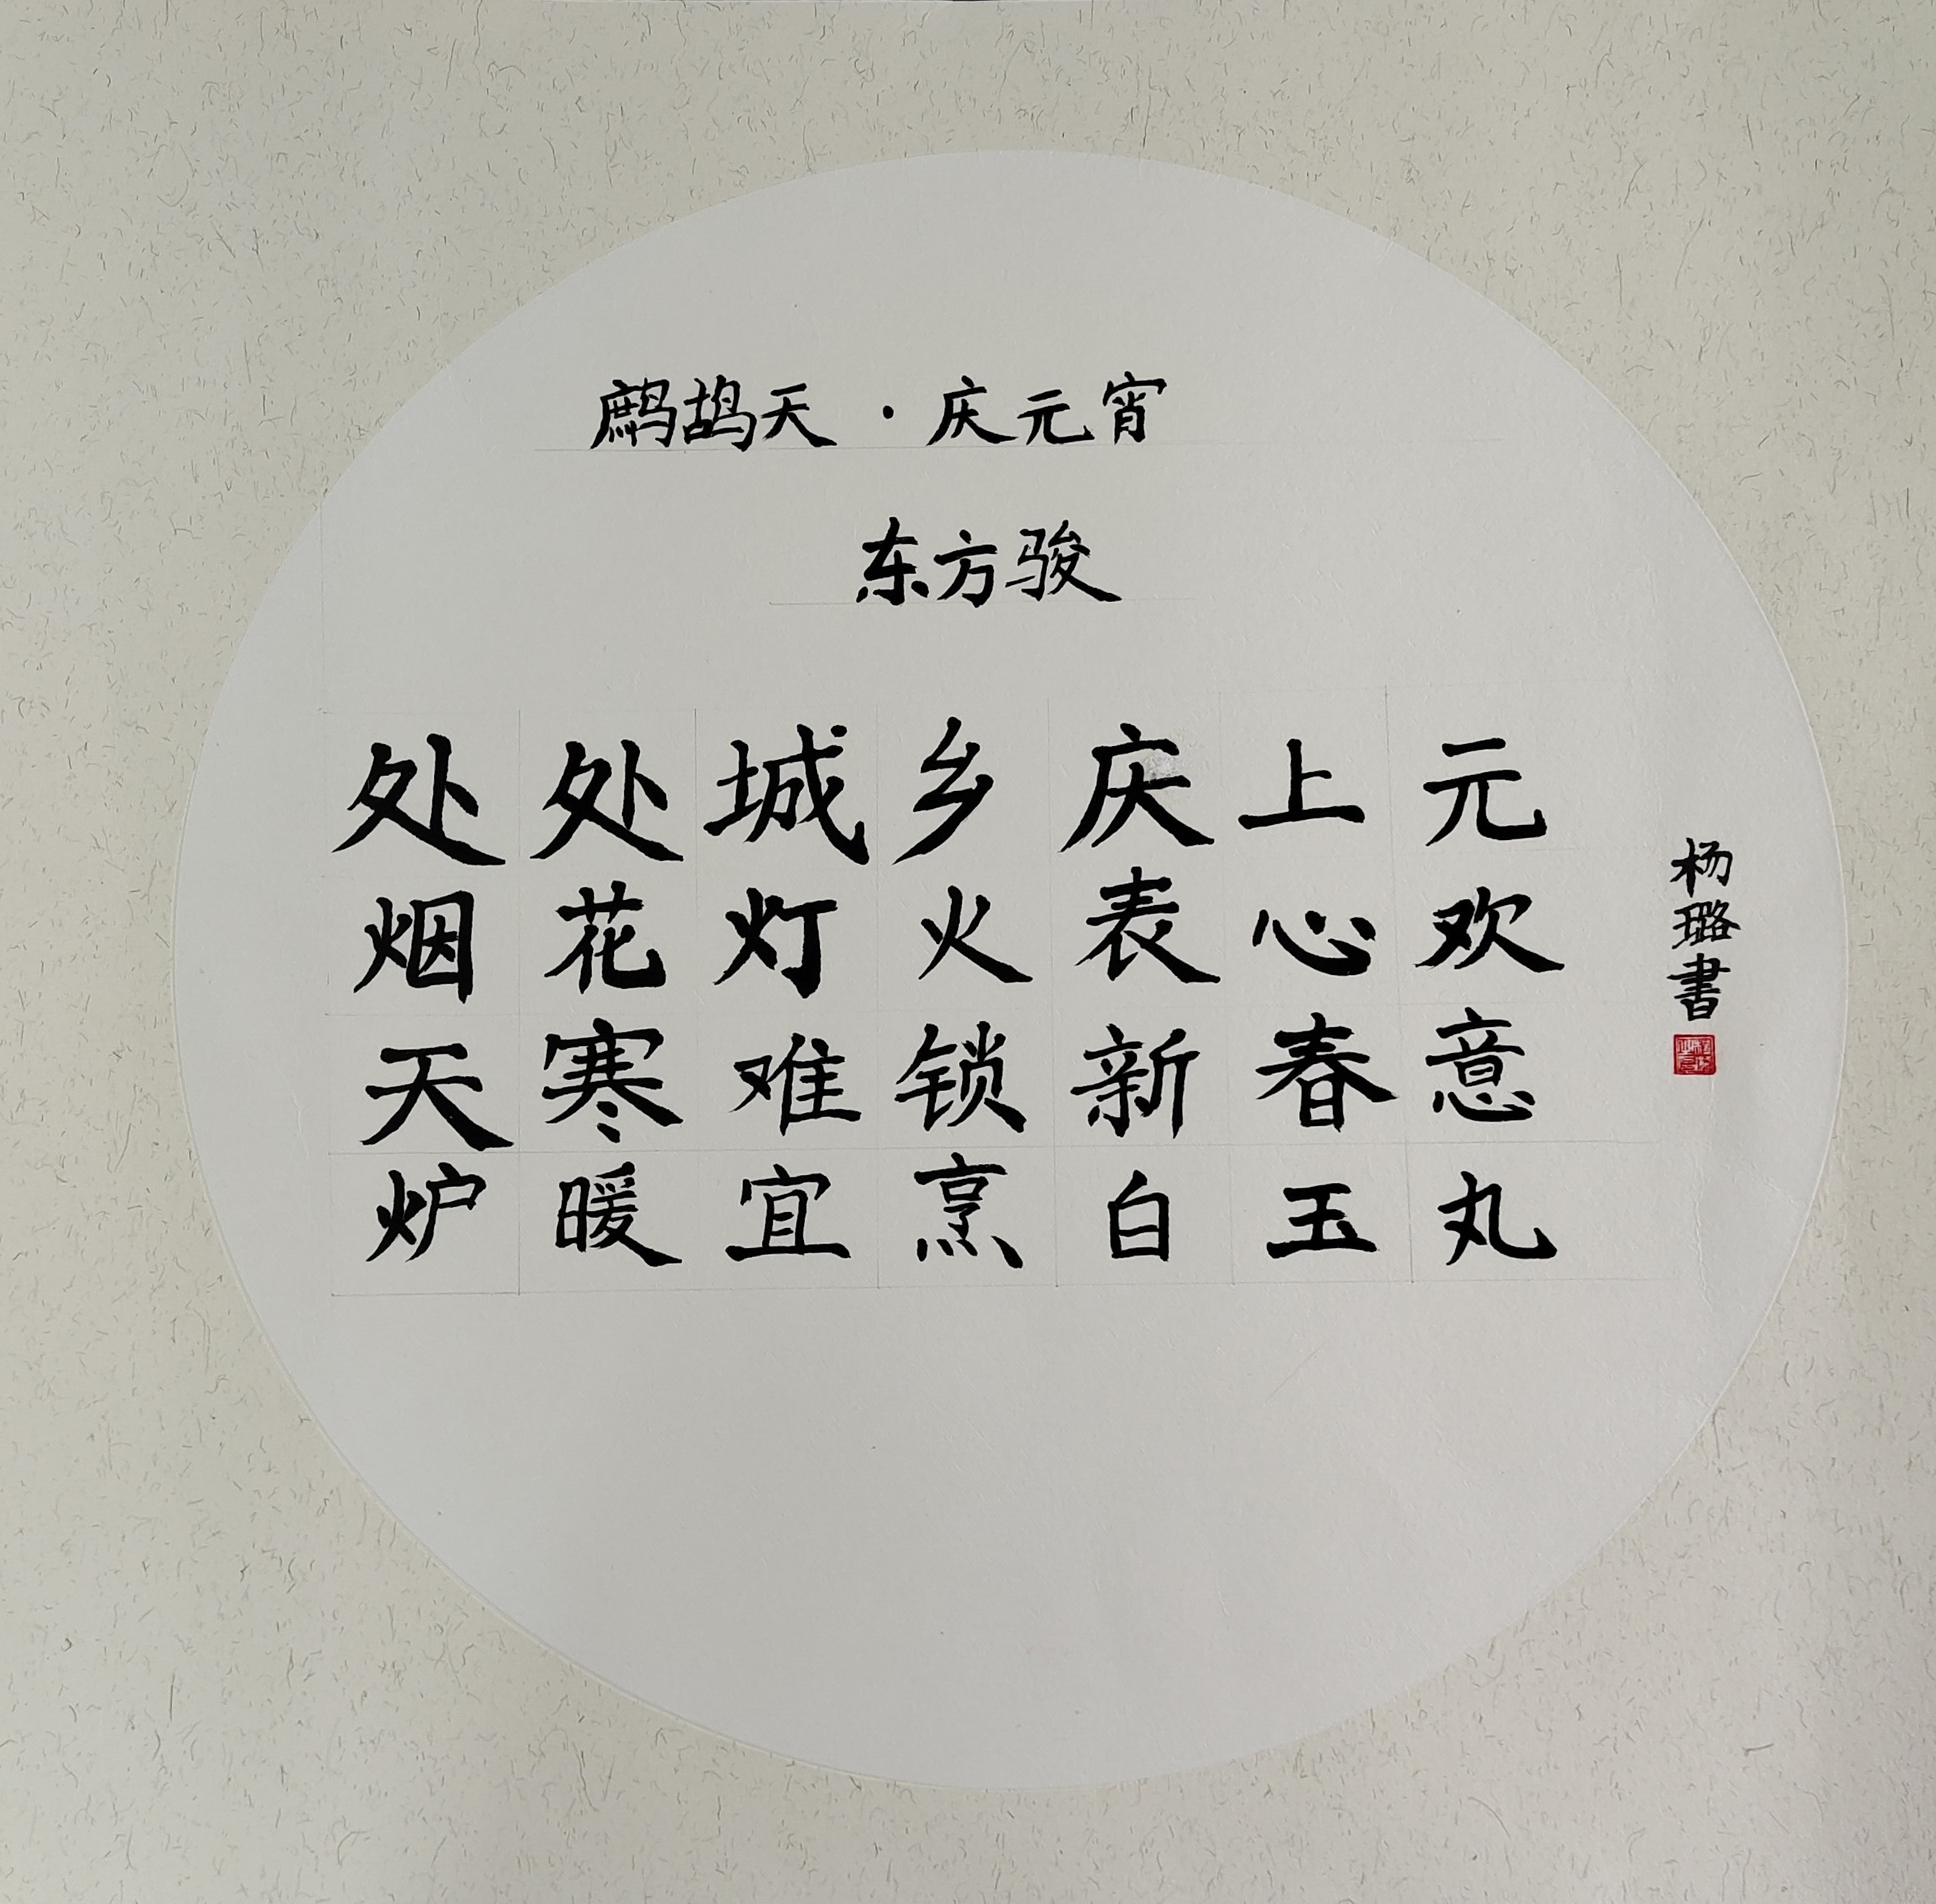 鹧鸪天·庆元宵
东方骏
处处城乡庆上元
烟花灯火表心欢
天寒难锁新春意
炉暖宜烹白玉丸
杨璐書